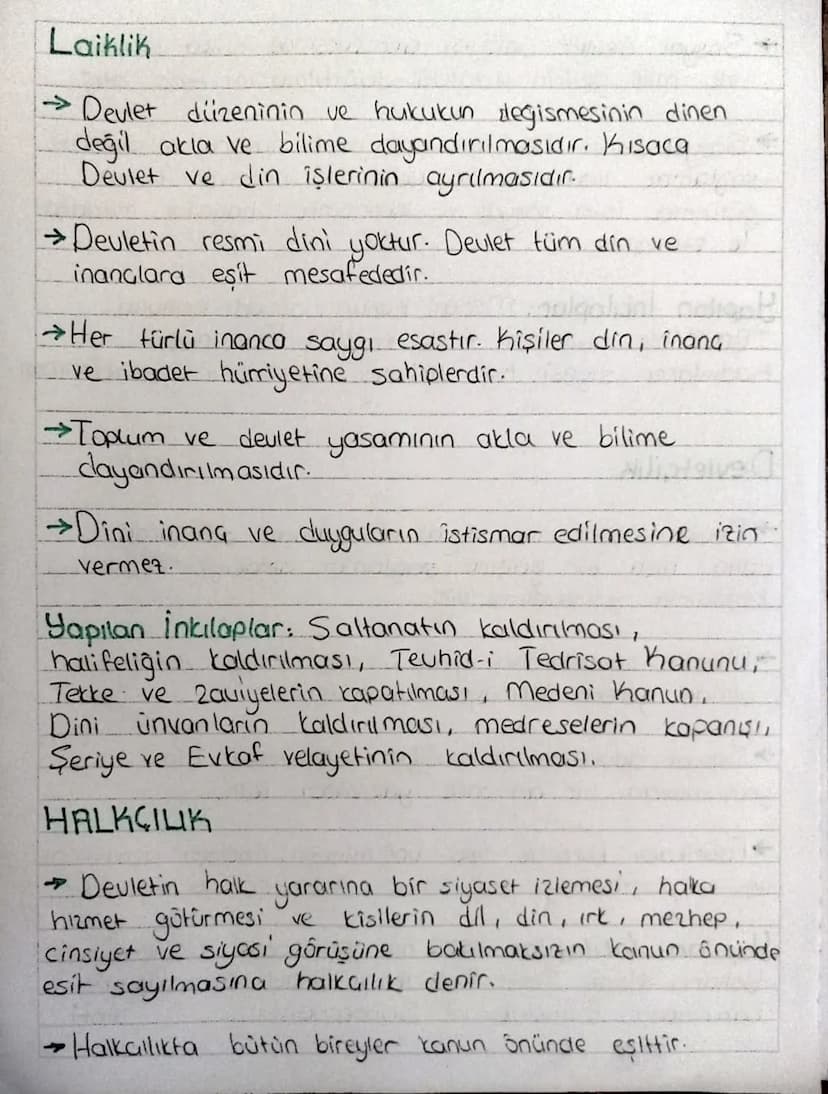 Laiklik
→ Devlet düzeninin ve hukukun değişmesinin dinen
değil akla ve bilime dayandırılmasıdır. Kısaca
Devlet ve din işlerinin ayrılmasıdır.
→ Devletin resmi dini yoktur. Devlet tüm din ve
inançlara eşit mesafededir.
→ Her türlü inanca saygı esastır. Kişiler din, inanç
ve ibadet hürriyetine sahiplerdir.
→ Toplum ve devlet yaşamının akla ve bilime
dayandırılmasıdır.
→ Dini inanç ve duyguların istismar edilmesine izin
vermez.
Yapılan İnkılaplar: Saltanatın kaldırılması,
halifeliğin kaldırılması, Tevhid-i Tedrisat Kanunu,
Tekke ve zaviyelerin kapatılması, Medeni Kanun,
Dini ünvanların kaldırılması, medreselerin kapanışı,
Şeriye ve Evkaf velayetinin kaldırılması.
HALKÇILIK
→ Devletin halk yararına bir siyaset izlemesi, halka
hizmet götürmesi ve kişilerin dil, din, ırk, mezhep,
cinsiyet ve siyasi görüşüne bakılmaksızın kanun önünde
eşit sayılmasına halkçılık denir.
→ Halkçılıkta bütün bireyler kanun önünde eşittir.